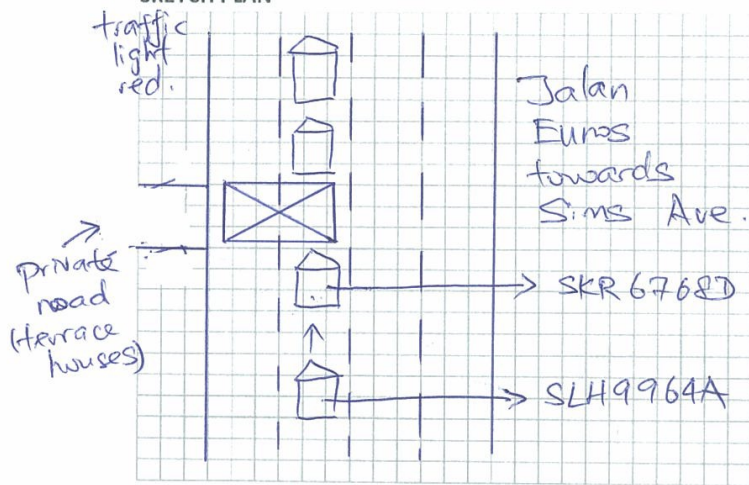 SKETCH PLAN
traffic
light
red.
Jalan
Eunos
towards
Sims Ave.
private
road
(terrace
houses)
SKR 6768D
SLH9964A